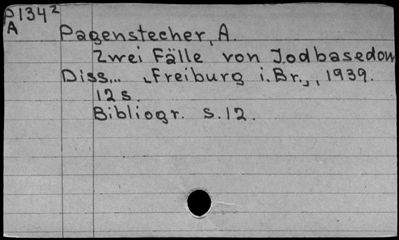 P1342
A
Pagenstecher, A.
Zwei Fälle von Jodbasedow
Diss... Freiburg i.Br., 1939.
12 s.
Bibliogr. s.12.